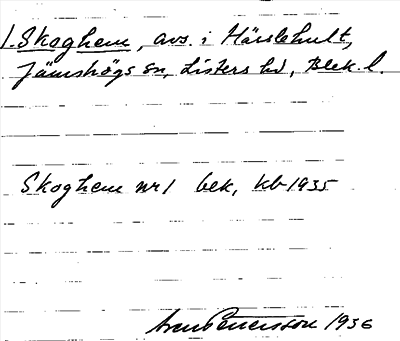 1. Skoghem, avs. i Härslehult,
Jämshögs sn, Listers hd, Blek. l.
Skoghem nr 1 bek, kb 1935
Pettersson 1936